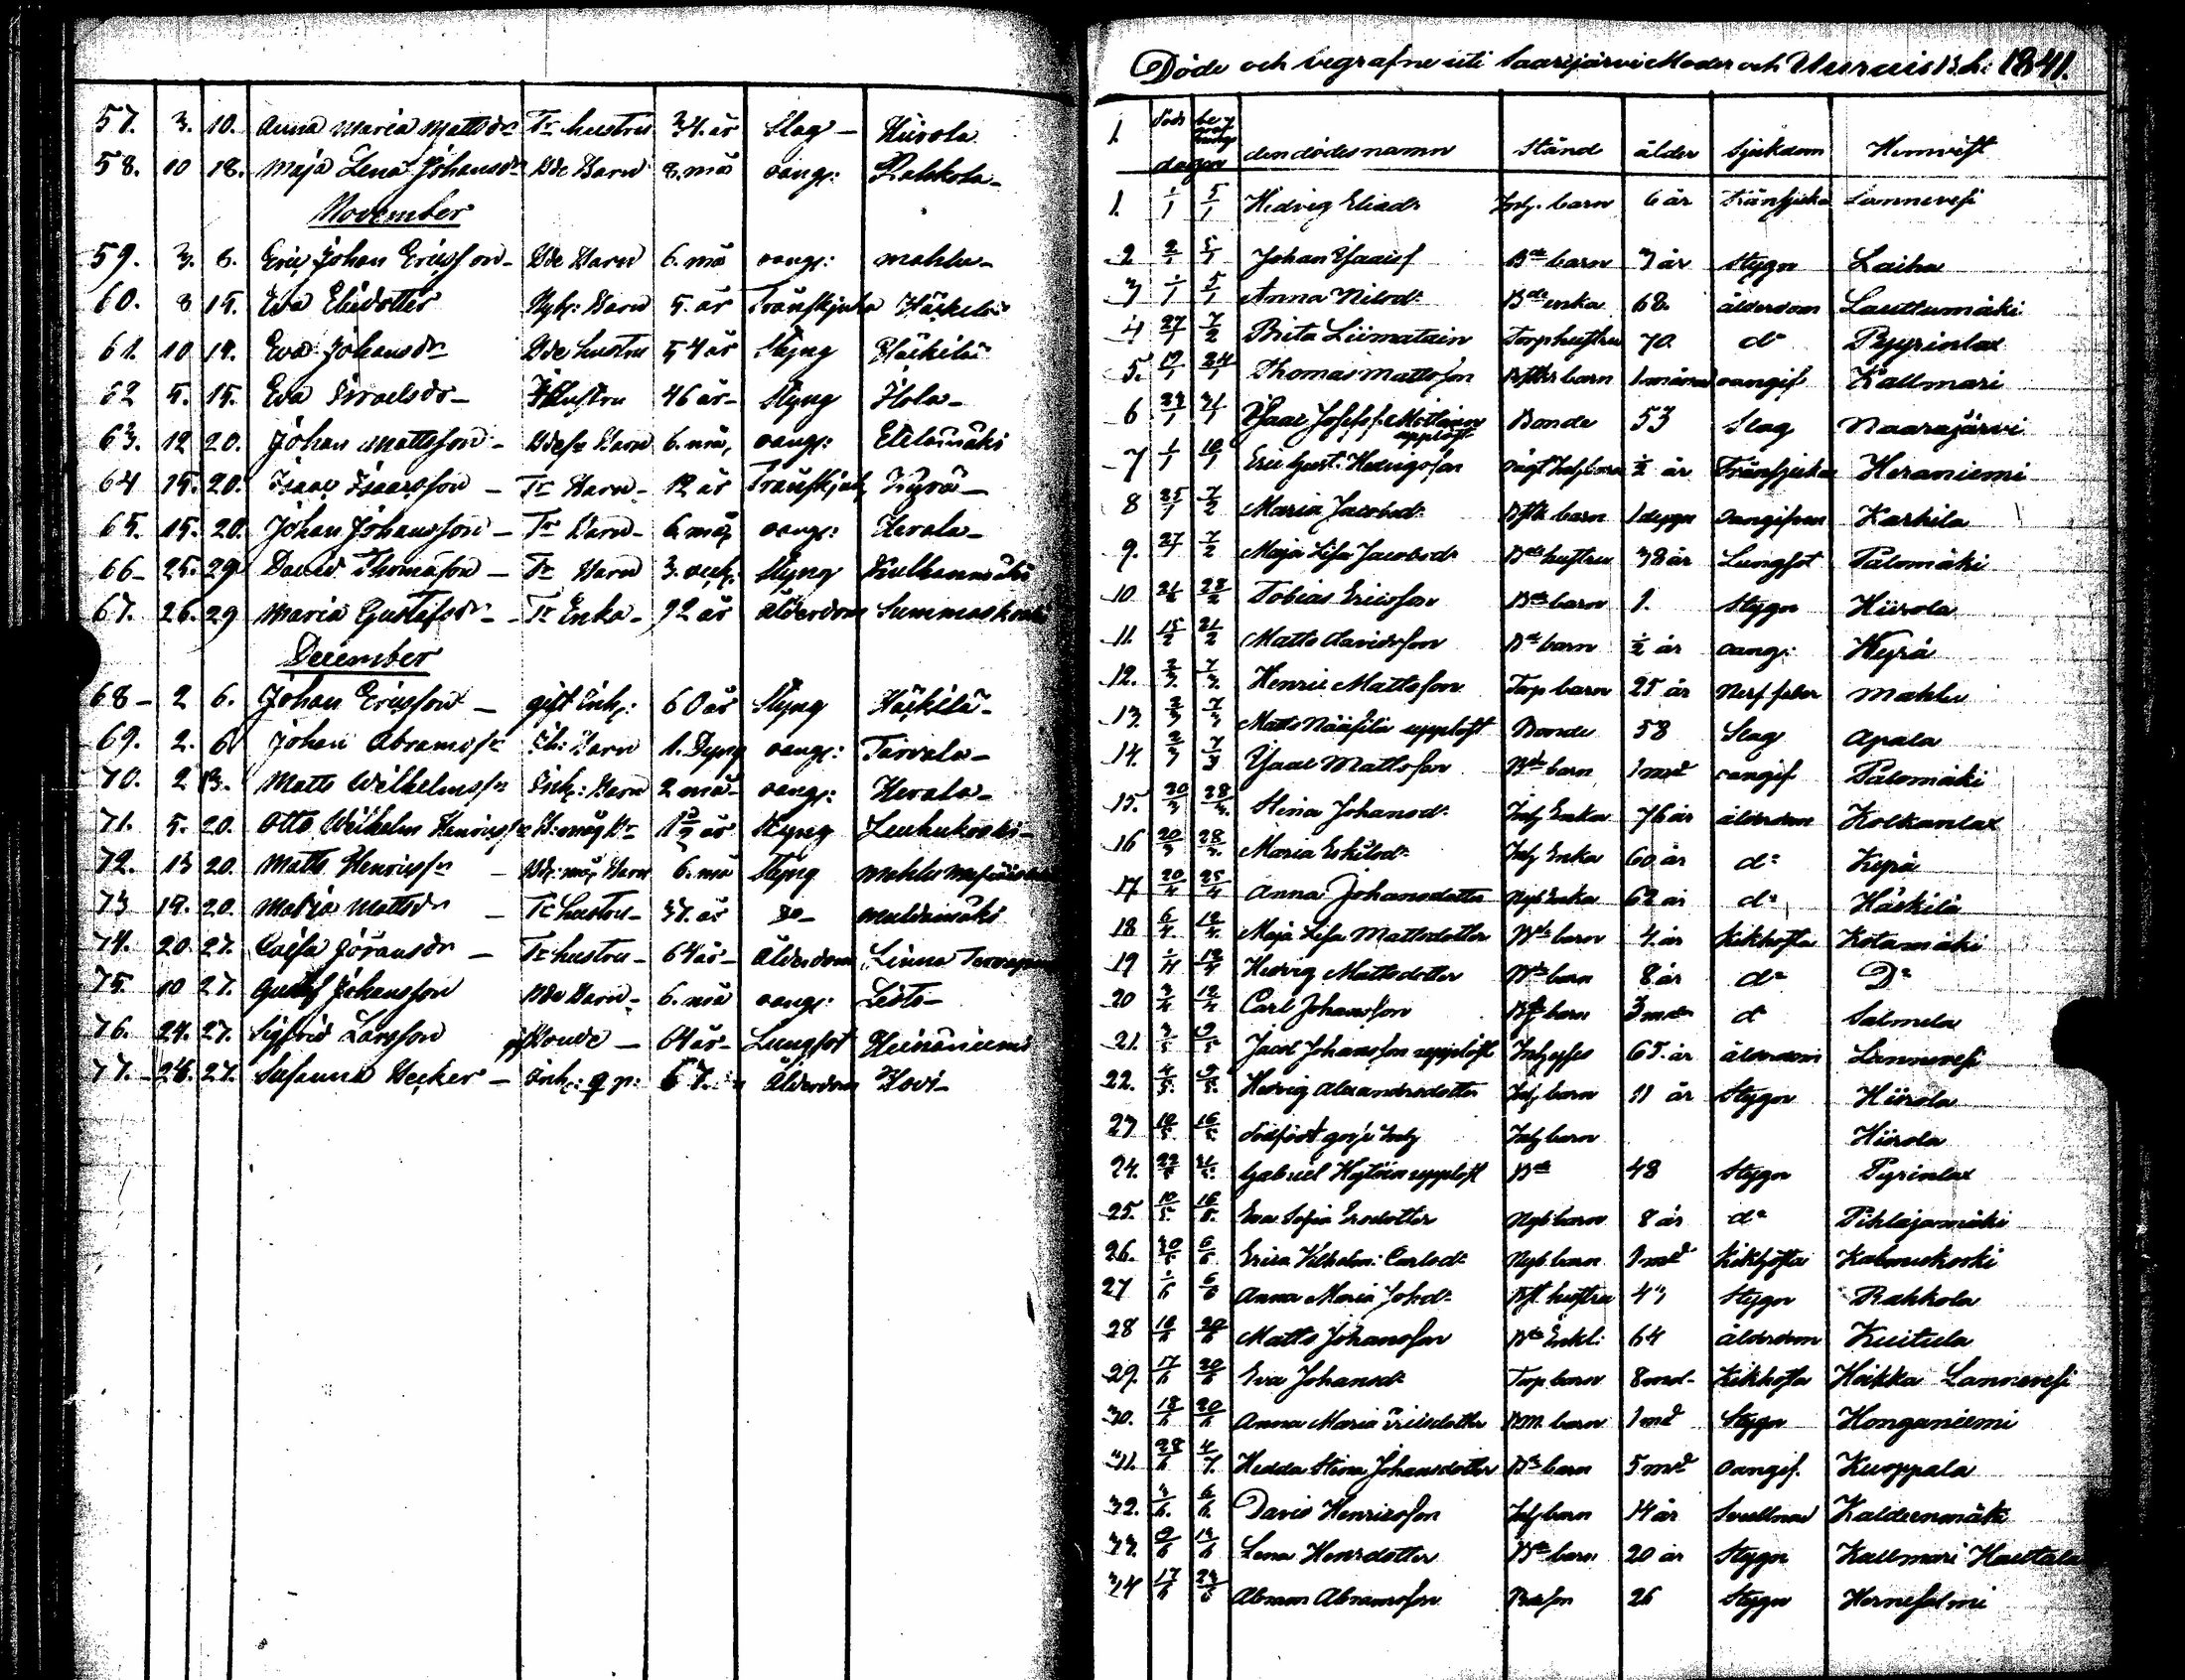 57. 3. 10. Anna Maria Mattsdr Tr hustru 34. år Slag - Hiirola
58. 10 18. Maja Lena Johansdr Bde Barn 8. må oangf: Rahkola -
November
59. 3. 6. Eric Johan Ericsson - Bde Barn 6. må oangf: Mahlu -
60. 8 15. Eva Elisdotter Nyb: Barn 5. år Frånskjuka Häckilä
61. 10 14. Eva Johansdr Bde hustru 54 år Styng Häckilä
62 5. 15. Eva Israelsdr - hustru 46 år - Styng Hola -
63. 12 20. Johan Mattsson - Barn 6. må, oangf: Etelämäki
64 15. 20. Isaac Isaacsson - Tr Barn - 12 år Frånskjuk, Kyrä -
65. 15. 20. Johan Johansson - Tr Barn - 6. må, oangf: Herala -
66 - 25. 29 David Thomasson - Tr Barn 3. veck. Styng Kulhanmäki
67. 26. 29 Maria Gustafsdr - Tr Enka - 92 år Ålderdom Summaskoski
December
68 - 2 6. Johan Ericsson - gift Inh: 60 år Styng Häckilä -
69. 2. 6 Johan Abramss: Inh: Barn 1. Dygn oangf: Tarvala -
70. 2 13. Matts Wilhelmss: Inh: Barn 2 må - oangf: Herala -
71. 5. 20. Otto Wilhelm Henricss: Styng Leuhukoski -
72. 13 20. Matts Henricss: - Barn 6. må Styng Mahlu
73 19. 20. Maria Mattsdr - Tr hustru - 37. år Do - Muldamäki
74. 20. 27. Caisa Göransdr - Tr hustru - 64 år - Ålderdom Linna
75 10 27. Gustaf Johansson Bde Barn - 6. må oangf: Leste -
76. 24. 27. Sigfrid Larsson Bonde - 64 år - Lungsot Heinäniemi
77. - 26. 27. Susanna Becker - Inh: 67. år Ålderdom Kovi -
Döde och begrafne uti Saarijärvi Moder och Uurais B.h. 1841.
1. död begrafnings dagen den dödes namn Stånd ålder Sjukdom Hemvist
1. 1/1 5/1 Hedvig Eliasdr Inh. barn 6 år Frånsjuka Lannevesi
2 2/1 5/1 Johan Isaacss Bde barn 3 år Stygn Laiha
3 1/1 5/1 Anna Nilsdr Bde enka 68. ålderdom Lauttumäki
4 27/1 7/2 Brita Liimatain Torp hustru 70 do Pyyrinlax
5. 19/1 24/1 Thomas Mattsson barn 1 månad oangif. Kallmari
6 23/1 31/1 Isaac Josefss. Möttönen upplöst Bonde 53 Slag Naarajärvi
7 1/1 10/1 Eric Gust. Hedvigsson oägt Inh. barn ½ år Frånsjuka Heraniemi
8 25/1 7/2 Maria Jacobsdr barn 1 dygn Oangifven Karhila
9. 27/1 7/2 Maja Lisa Jacobsdr Bde hustru 38 år Lungsot Palomäki
10 21/2 28/2 Tobias Ericsson Bde barn 1. Stygn Hiirola
11. 15/2 21/2 Matts Davidsson Bde barn ½ år oang: Kyrä
12. 2/3. 7/3. Henric Mattsson Torp barn 25 år Nerf feber Mahlu
13. 2/3 7/3 Matts Nääsilä upplöst Bonde 58 Slag Apala
14. 2/3 7/3 Isaac Mattsson Bde barn 1 md oangif. Palomäki
15. 20/3 28/3. Stina Johansdr Inh Enka 76 år ålderdom Kolkanlax
16 20/3 28/3. Maria Eskilsdr Inh Enka 60 år do Kyrä
17. 20/4 25/4 Anna Johansdotter Nyb Enka 62 år do Häckilä
18 6/4. 12/4. Maja Lisa Mattsdotter Bde barn 4. år Kikhosta Kotamäki
19 1/4 12/4 Hedvig Mattsdotter Bde barn 8 år do Do
20 3/4 12/4 Carl Johansson barn 3 md do Salmela
21. 3/5 9/5 Jacob Johansson upplöst Inhyses 65. år ålderdom Lannevesi
22. 4/5. 9/5. Hedvig Alexandersdotter Inh barn 11 år Stygn Hiirola
23 10/5 16/5. dödfödt gosse Inh Inh barn Hiirola
24. Gabriel Hytöin upplöst Bde 48 Stygn Pyrinlax
25. 10/5. 16/5. Eva Sofia Ersdotter Nyb barn 8 år do Pihlajamäki
26. 30/5 6/6 Erica Vilhelm: Carlsdr Nyb barn 1 md Kikhosta Kalmukoski
27 1/6 6/6 Anna Maria Johdr hustru 43 Stygn Rahkola
28 16/6 20/6 Matts Johansson Bde Enkl: 64 ålderdom Kuitula
29. 17/6 20/6 Eva Johansdr Torp barn 8 md - Kikhosta Hoikka Lannevesi
30. 18/6 20/6 Anna Maria Ericsdotter barn 1 md Stygn Honganiemi
31. 28/6 4/7. Hedda Stina Johansdotter Bde barn 5 md Oangif. Kuoppala
32. 3/6. 6/6. David Henricsson Inh. barn 14 år Svullnad Kaldeenmäki
33. 9/6 13/6 Lena Henrsdotter Bde barn 20 år Stygn Kallmari Hautala
34 17/6 Abram Abramsson Bdeson 26 Stygn Hernesalmi